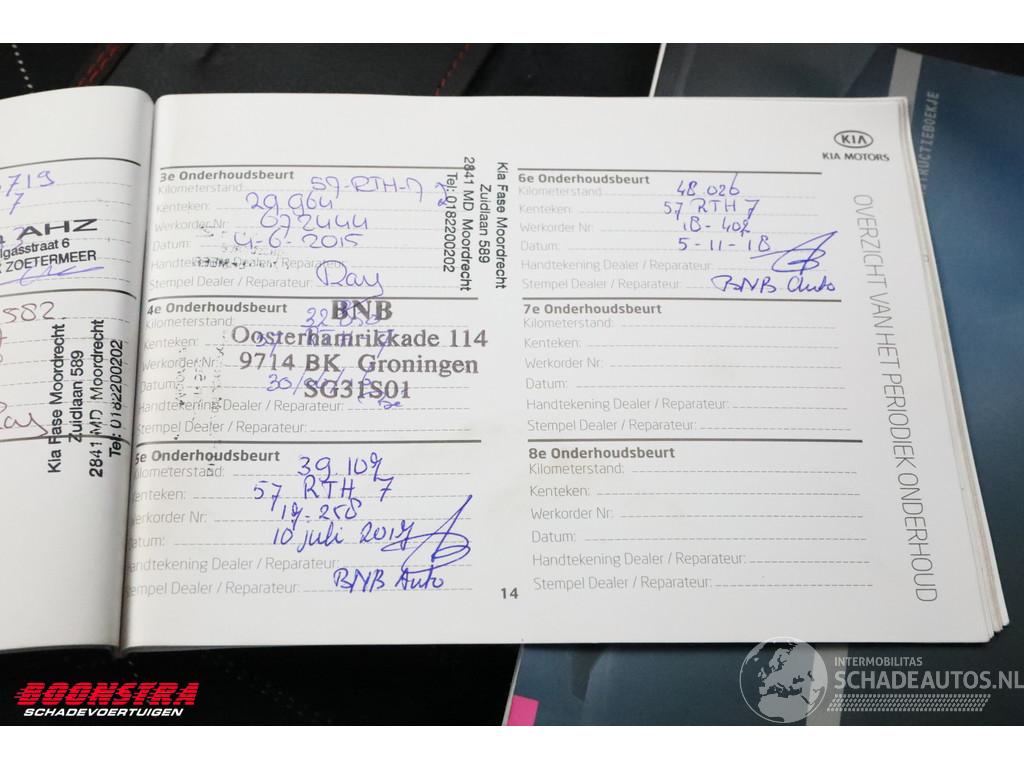 719
7
AHZ
lgasstraat 6
ZOETERMEER
582
Ray
Kia Fase Moordrecht
Zuidlaan 589
2841 MD Moordrecht
Tel: 0182200202
3e Onderhoudsbeurt
Kilometerstand: 57-RTH-7
Kenteken: 29.964
Werkorder Nr: 672444
Datum: 4-6-2015
Handtekening Dealer / Reparateur:
Stempel Dealer / Reparateur: Ray
Kia Fase Moordrecht
Zuidlaan 589
2841 MD Moordrecht
Tel: 0182200202
4e Onderhoudsbeurt
Kilometerstand:
Kenteken:
Werkorder Nr:
Datum:
Handtekening Dealer / Reparateur:
Stempel Dealer / Reparateur:
BNB
Oosterhamrikkade 114
9714 BK Groningen
SG31S01
5e Onderhoudsbeurt
Kilometerstand: 39.107
Kenteken: 57 RTH 7
Werkorder Nr: 17-258
Datum: 10 juli 2017
Handtekening Dealer / Reparateur:
Stempel Dealer / Reparateur: BNB Auto
14
KIA
KIA MOTORS
6e Onderhoudsbeurt
Kilometerstand: 48.026
Kenteken: 57 RTH 7
Werkorder Nr: 18-407
Datum: 5-11-18
Handtekening Dealer / Reparateur:
Stempel Dealer / Reparateur: BNB Auto
7e Onderhoudsbeurt
Kilometerstand:
Kenteken:
Werkorder Nr:
Datum:
Handtekening Dealer / Reparateur:
Stempel Dealer / Reparateur:
8e Onderhoudsbeurt
Kilometerstand:
Kenteken:
Werkorder Nr:
Datum:
Handtekening Dealer / Reparateur:
Stempel Dealer / Reparateur:
OVERZICHT VAN HET PERIODIEK ONDERHOUD
TRUCTIEBOEKJE
BOONSTRA
SCHADEVOERTUIGEN
INTERMOBILITAS
SCHADEAUTOS.NL